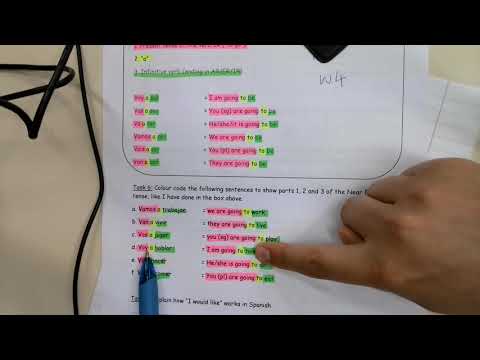 2. "a"
3. Infinitive verb (ending in AR/ER/IR)
W4
Voy a ser = I am going to be
Vas a ser = You (sg) are going to be
Va a ser = He/she/it is going to be
Vamos a ser = We are going to be
Vais a ser = You (pl) are going to be
Van a ser = They are going to be
Task 6: Colour code the following sentences to show parts 1, 2 and 3 of the Near
tense, like I have done in the box above.
a. Vamos a trabajar = we are going to work
b. Van a vivir = they are going to live
c. Vas a jugar = you (sg) are going to play
d. Voy a hablar = I am going to
e. = He/she is going to
f. = You (pl) are going to eat
plain how "I would like" works in Spanish